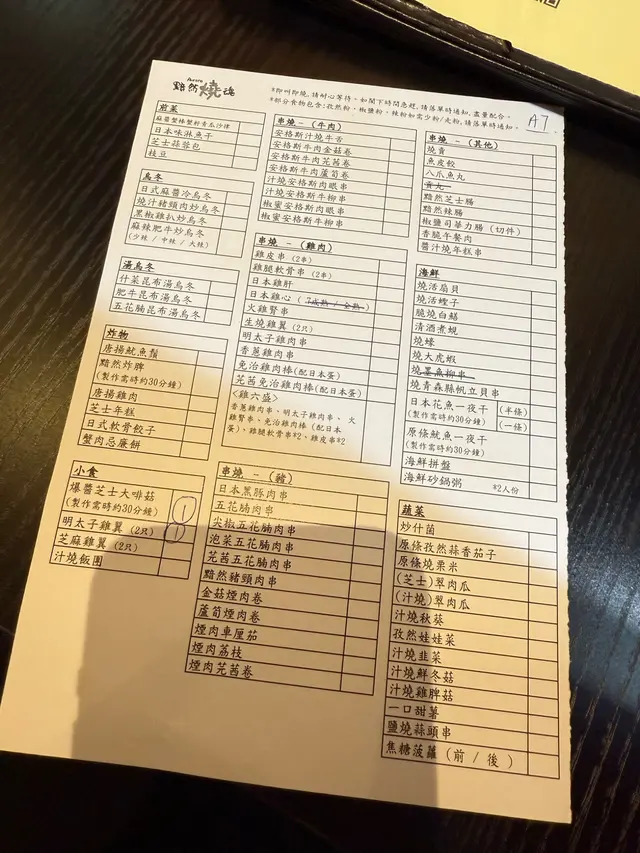 黯然燒魂
*即叫即燒,請耐心等待。如閣下時間急趕,請落單時通知,盡量配合。
*部分食物包含:孜然粉、椒鹽粉、辣粉如需少粉/走粉,請落單時通知。
A7
前菜
麻醬蟹棒蟹籽青瓜沙律
日本味淋魚干
芝士蒜蓉包
枝豆
烏冬
日式麻醬冷烏冬
燒汁豬頸肉炒烏冬
黑椒雞扒炒烏冬
麻辣肥牛炒烏冬
(少辣 / 中辣 / 大辣)
湯烏冬
什菜昆布湯烏冬
肥牛昆布湯烏冬
五花腩昆布湯烏冬
炸物
唐揚魷魚鬚
黯然炸髀
(製作需時約30分鐘)
唐揚雞肉
芝士年糕
日式軟骨餃子
蟹肉忌廉餅
小食
爆醬芝士大啡菇
(製作需時約30分鐘)
1
明太子雞翼 (2只)
1
芝麻雞翼 (2只)
汁燒飯團
串燒 - (牛肉)
安格斯汁燒牛舌
安格斯牛肉金菇卷
安格斯牛肉芫茜卷
安格斯牛肉蘆筍卷
汁燒安格斯肉眼串
汁燒安格斯牛柳串
椒蜜安格斯肉眼串
椒蜜安格斯牛柳串
串燒 - (雞肉)
雞皮串 (2串)
雞腿軟骨串 (2串)
日本雞肝
日本雞心 ( 7成熟 / 全熟 )
火雞腎串
生燒雞翼 (2只)
明太子雞肉串
香蔥雞肉串
免治雞肉棒(配日本蛋)
芫茜免治雞肉棒(配日本蛋)
<雞六盛>
香蔥雞肉串、明太子雞肉串、 火
雞腎串、免治雞肉棒 (配日本
蛋)、雞腿軟骨串*2、雞皮串*2
串燒 - (豬)
日本黑豚肉串
五花腩肉串
尖椒五花腩肉串
泡菜五花腩肉串
芫茜五花腩肉串
黯然豬頸肉串
金菇煙肉卷
蘆筍煙肉卷
煙肉車厘茄
煙肉荔枝
煙肉芫茜卷
串燒 - (其他)
燒賣
魚皮餃
八爪魚丸
貢丸
黯然芝士腸
黯然辣腸
椒鹽司華力腸 (切件)
香脆午餐肉
醬汁燒年糕串
海鮮
燒活扇貝
燒活蟶子
脆燒白鱔
清酒煮蜆
燒蠔
燒大虎蝦
燒墨魚柳串
燒青森縣帆立貝串
日本花魚一夜干
(製作需時約30分鐘)
(半條)
(一條)
原條魷魚一夜干
(製作需時約30分鐘)
海鮮拼盤
海鮮砂鍋粥 *2人份
蔬菜
炒什菌
原條孜然蒜香茄子
原條燒粟米
(芝士)翠肉瓜
(汁燒)翠肉瓜
汁燒秋葵
孜然娃娃菜
汁燒韭菜
汁燒鮮冬菇
汁燒雞脾菇
一口甜薯
鹽燒蒜頭串
焦糖菠蘿 (前 / 後 )